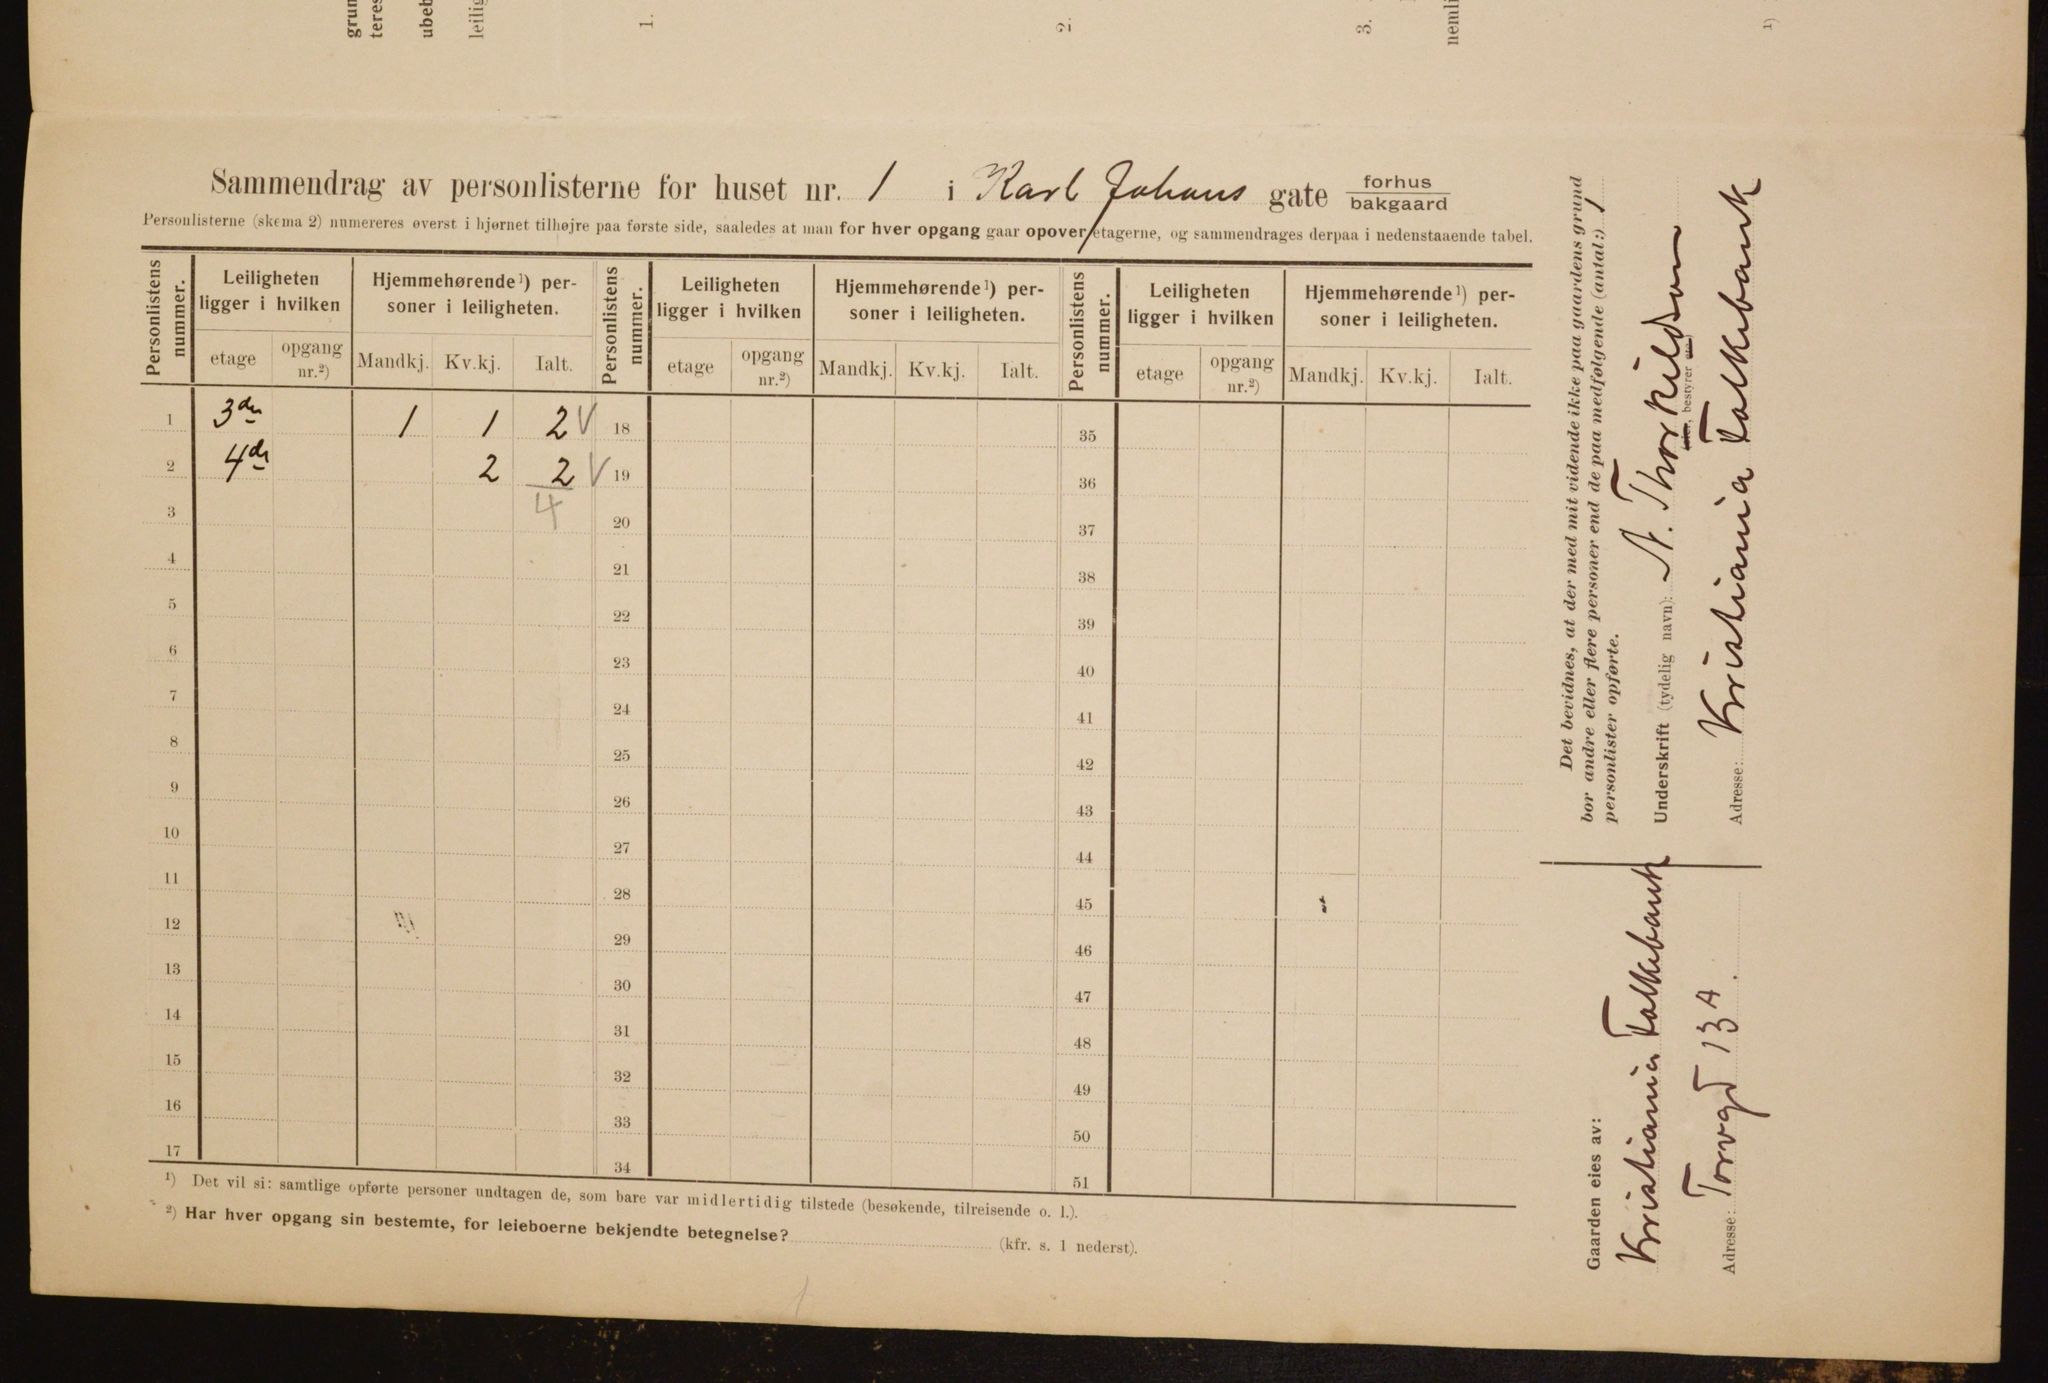 grun
teres
ubeb
leilig
1.
2.
3.
nemli
1)
Sammendrag av personlisterne for huset nr. 1 i Karl Johans gate forhus
bakgaard
Personlisterne (skema 2) numereres øverst i hjørnet tilhøjre paa første side, saaledes at man for hver opgang gaar opover etagerne, og sammendrages derpaa i nedenstaaende tabel.
Personlistens nummer. Leiligheten ligger i hvilken Hjemmehørende 1) personer i leiligheten. Personlistens nummer. Leiligheten ligger i hvilken Hjemmehørende 1) personer i leiligheten. Personlistens nummer. Leiligheten ligger i hvilken Hjemmehørende 1) personer i leiligheten.
etage opgang nr.2) Mandkj. Kv.kj. Ialt. etage opgang nr.2) Mandkj. Kv.kj. Ialt. etage opgang nr.2) Mandkj. Kv.kj. Ialt.
1 3de 1 1 2 V 18 35
2 4de 2 2 V 19 36
3 4 20 37
4 21 38
5 22 39
6 23 40
7 24 41
8 25 42
9 26 43
10 27 44
11 28 45
12 29 46
13 30 47
14 31 48
15 32 49
16 33 50
17 34 51
1) Det vil si: samtlige opførte personer undtagen de, som bare var midlertidig tilstede (besøkende, tilreisende o. l.).
2) Har hver opgang sin bestemte, for leieboerne bekjendte betegnelse? (kfr. s. 1 nederst).
Det bevidnes, at der med mit vidende ikke paa gaardens grund
bor andre eller flere personer end de paa medfølgende (antal:) 1
personlister opførte.
Underskrift (tydelig navn): N. Thorkildsen
bestyrer
Adresse: Kristiania Folkebank
Gaarden eies av:
Kristiania Folkebank
Adresse: Torvgt 13A.